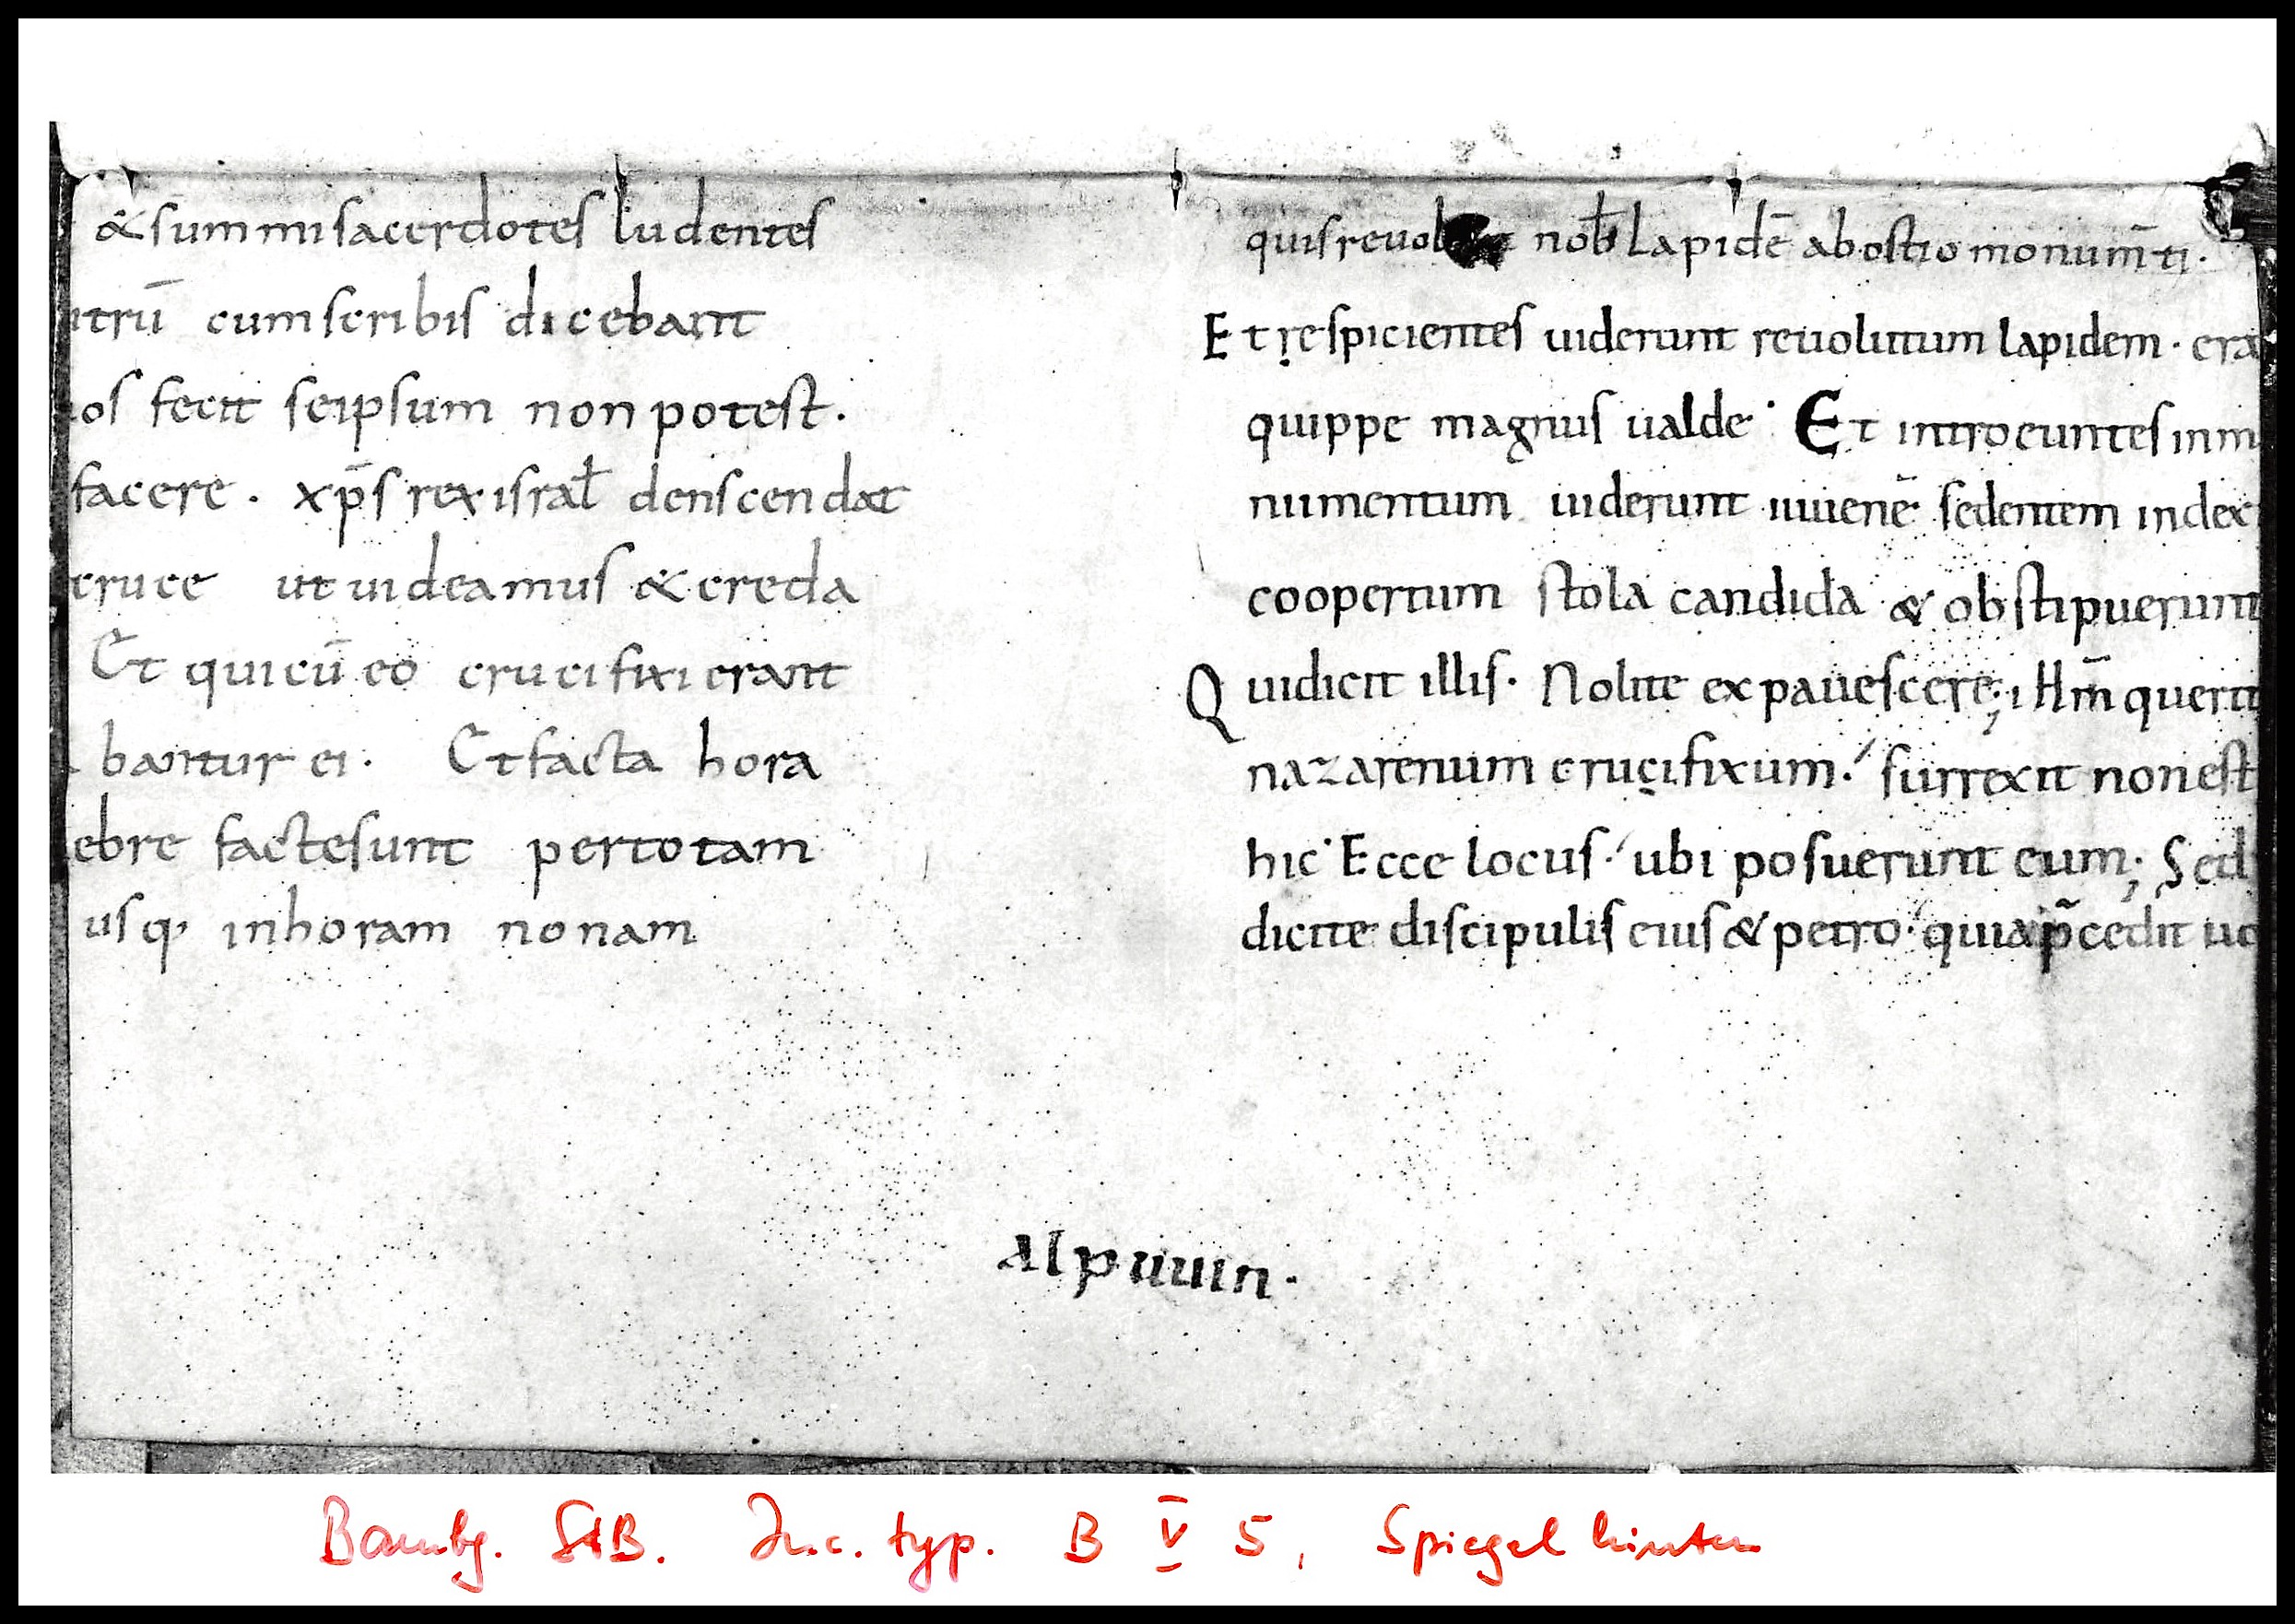 & summi sacerdotes ludentes
itrū cum scribis dicebant
os fecit seipsum non potest.
facere. xp̄s rex israł denscendat
cruce ut uideamus & creda
Et qui cū eo crucifixi erant
bantur ei. Et facta hora
ebre factesunt per totam
usq, in horam nonam
quis reuol nob̄ Lapidē ab ostio monum̄ti.
Et respicientes uiderunt reuolutum lapidem. era
quippe magnus ualde. Et introeuntes in m
numentum uiderunt iuuenē sedentem in dex
coopertum stola candida & obstipuerunt
Qui dicit illis. Nolite expauescere; iHm̄ querit
nazarenum crucifixum. surrexit non est
hic. Ecce locus. ubi posuerunt eum; Sed
dicite discipulis eius & petro. quia p̄cedit uo
alpuuin.
Bambg. StB. Inc. typ. B V 5, Spiegel hinten